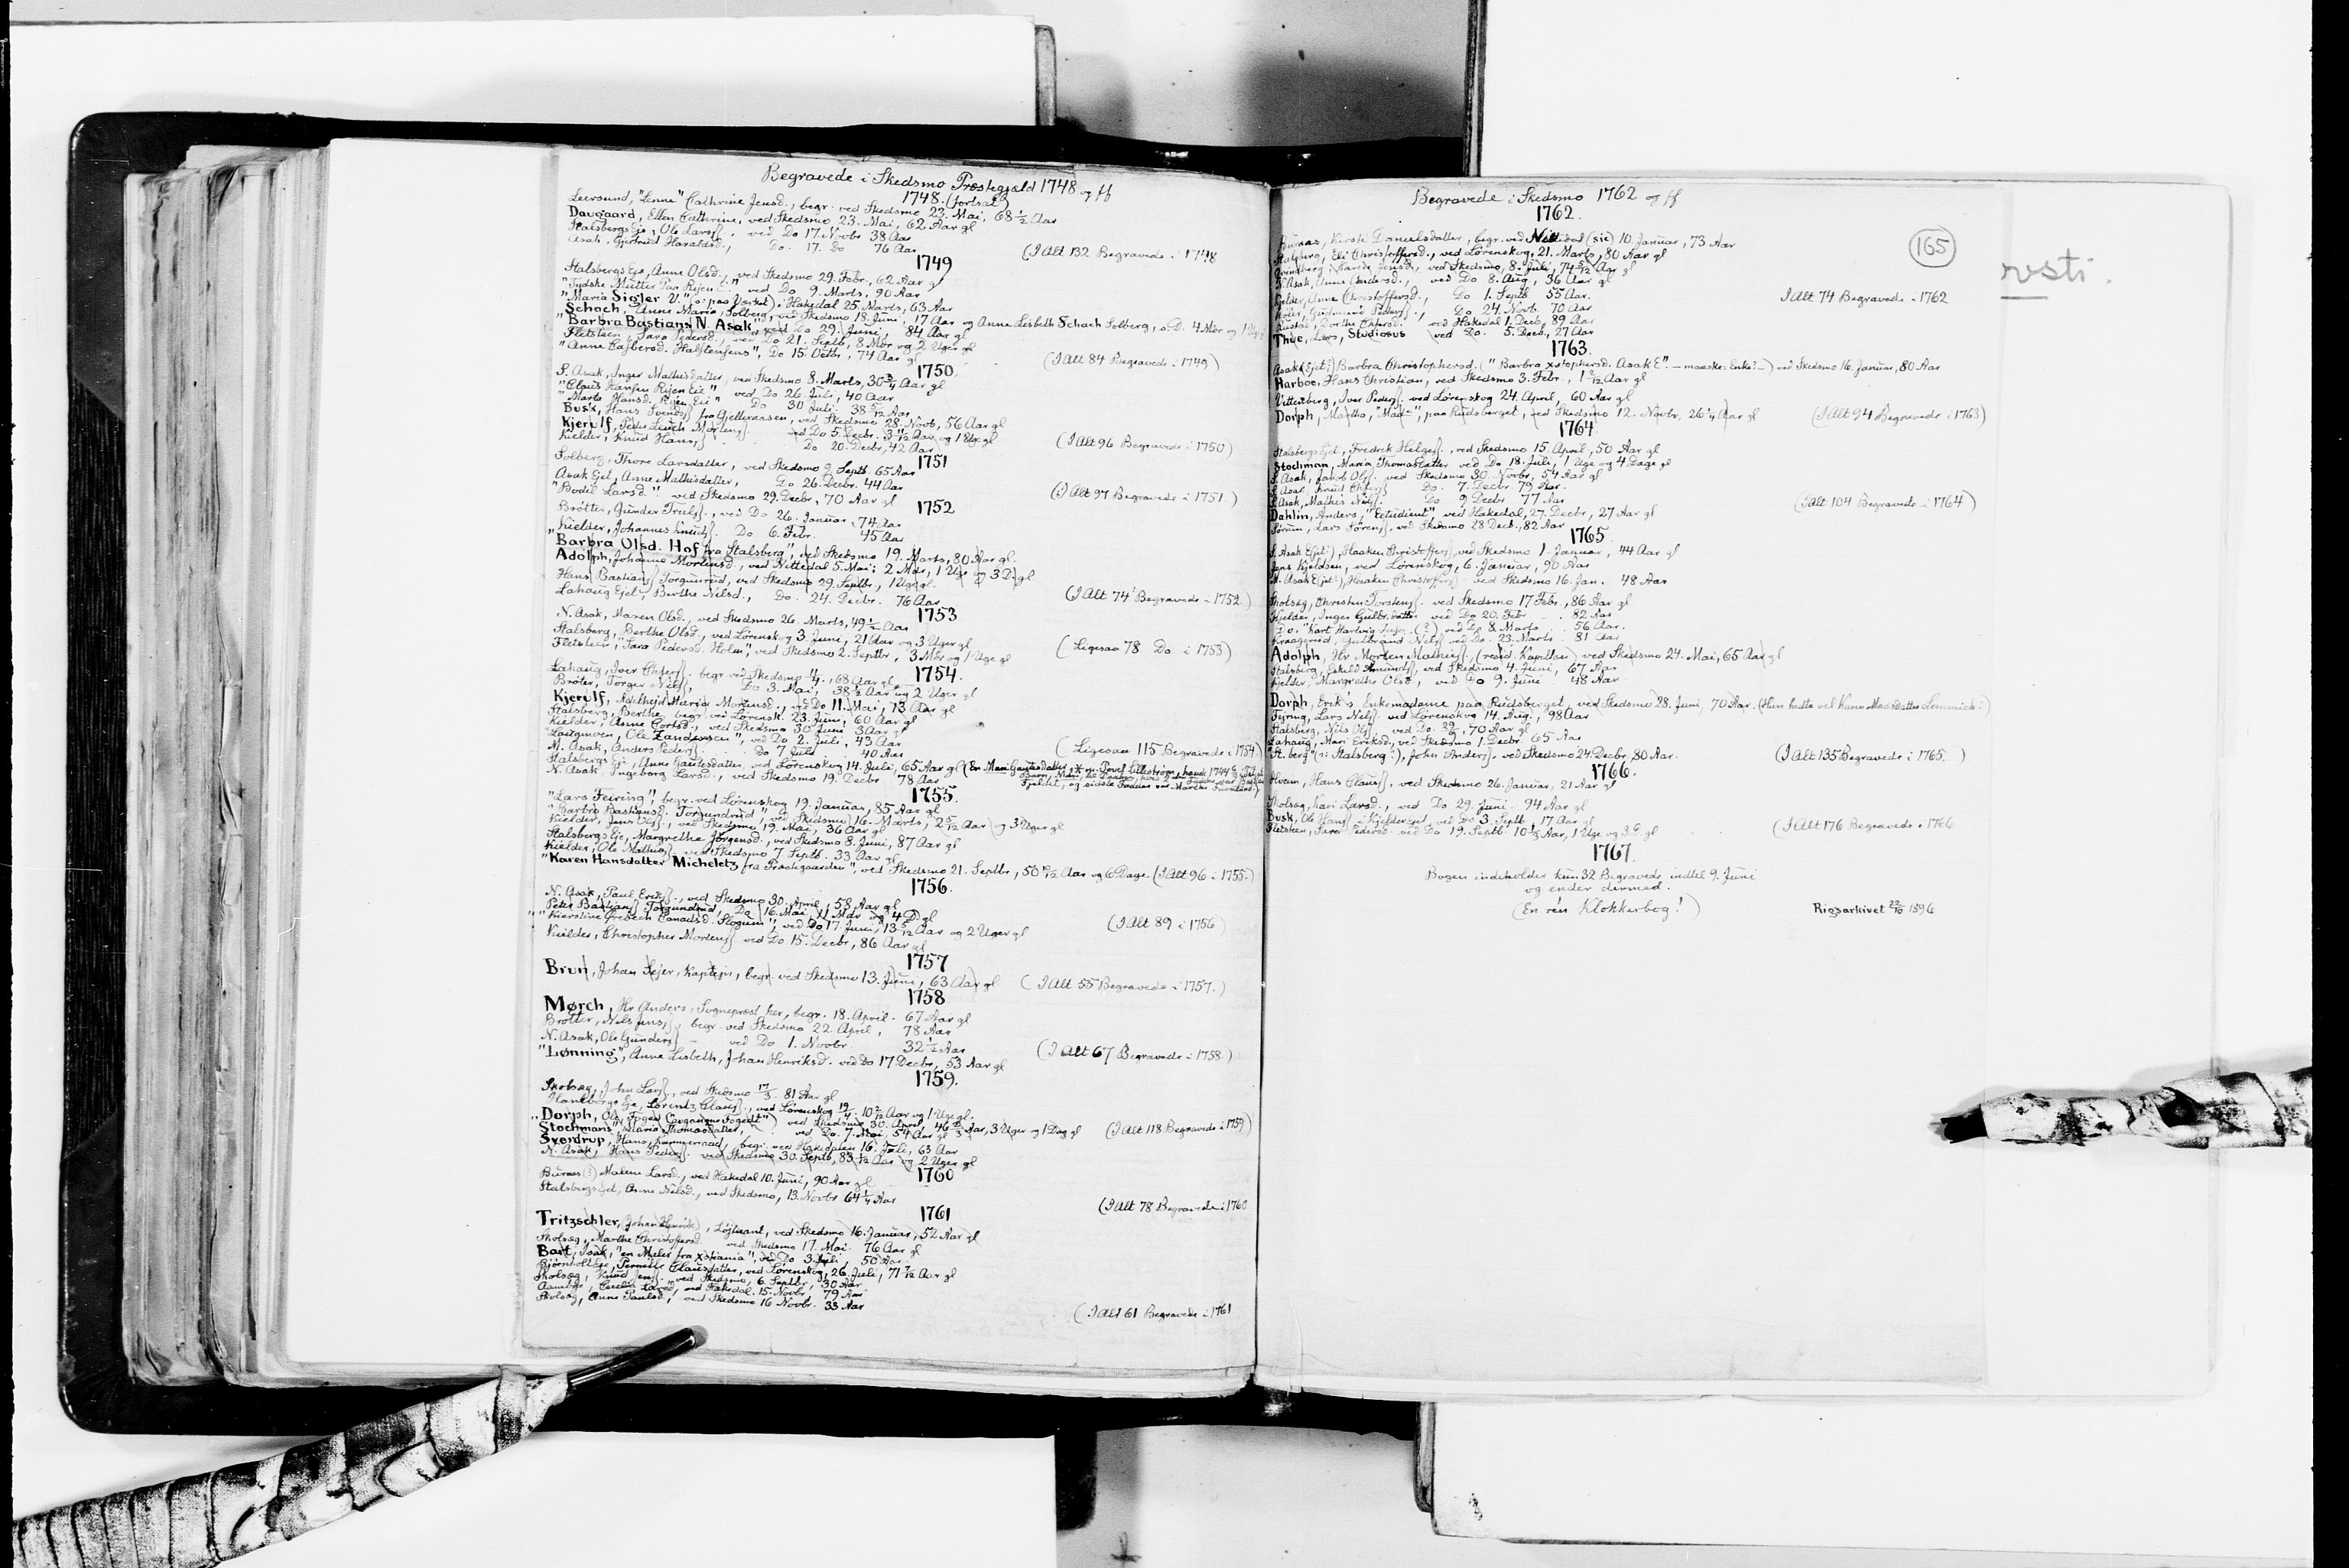 Begravede i Skedsmo Præstegjæld 1748 og ff
1748. (fortsat)
Leersund, "Lenne" Cathrine Jensd., begr. ved Skedsmo 23. Mai, 68 1/2 Aar
Daugaard, Ellen Cathrine, ved Skedsmo 23. Mai, 62 Aar gl
Stalsbergs Eje, Ole Larss., ved Do 17. Novbr 38 Aar
Asak, Gjertrud Haraldsd., Do. 17. Do 76 Aar
(I Alt 132 Begravede i 1748
1749
Stalsbergs Eje, Anne Olsd., ved Skedsmo 29. Febr., 62 Aar gl
"Tydske Mutter Paa Rijen E." ved Do 9. Marts, 90 Aar
"Maria Sigler V." (ɔ: paa Værket) i Hakedal 25 Marts, 63 Aar
Schach, Anne Maria, Solberg, ved Skedsmo 18. Juni, 17 Aar og Anne Lisbeth Schach Solberg, s. D. 4 Mdr og
"Barbra Bastians N. Asak", ved Do 29. Juni, 84 Aar gl
Fletsteen, Sara Pedersd., ved Do 21. Septb, 8 Mdr og 2 Uger gl
"Anne Casbersd. Halstensens", Do 15. Octbr, 74 Aar gl
(I Alt 84 Begravede i 1749)
1750.
S. Asak, Inger Mathisdatter, ved Skedsmo 8. Marts, 30 3/4 Aar gl
"Claus Hansen Rijen Eie" ved Do 26. Juli, 40 Aar
"Marta Hansd. Rijen Eie" Do 30 Juli. 38 5/12 Aar
Busk, Hans Svends. fra Gjelleraasen, ved Skedsmo 28. Novb, 56 Aar gl
Kjerulf, Peder Leuch Mortens. ved Do 5. Decbr. 3 11/12 Aar og 1 Uge gl
Kielder, Knud Hans, Do 20. Decbr, 42 Aar
(I Alt 96 Begravede i 1750)
1751
Solberg, Thore Larsdatter, ved Skedsmo 9. Septb. 65 Aar
Asak Ejet, Anne Mathisdatter, Do 26. Decbr. 44 Aar
"Bodil Larsd." ved Skedsmo 29. Decbr, 70 Aar gl
(I Alt 97 Begravede i 1751.)
1752
Brötter, Gunder Truls., ved Do 26. Januar, 74 Aar
Kielder, Johannes Knuds. Do. 6. Febr. 45 Aar
"Barbra Olsd. Hof fra Stalsberg", ved Skedsmo 19. Marts, 80 Aar gl.
Adolph, Johanne Mortensd., ved Nittedal 5. Mai: 2 Mdr, 1 Uge og 3 D. gl
Hans Bastians. Torgunrud, ved Skedsmo 29. Septbr., 1 Uge gl.
Lahaug Ejet, Berthe Nilsd., Do. 24. Decbr. 76 Aar
(I Alt 74 Begravede i 1752.)
1753
N. Asak, Maren Olsd., ved Skedsmo 26. Marts, 49 1/2 Aar
Stalsberg, Berthe Olsd., ved Lørenskog 3. Juni, 21 Aar og 3 Uger gl
Fletsteen, "Sara Pedersd. Holm", ved Skedsmo 2. Septbr, 3 Mdr og 1 Uge gl
(Ligesaa 78 Do i 1753)
1754.
Lahaug, Iver Chfers. begr. ved Skedsmo 1/4., 68 Aar gl
Bröter, Torger Nils., Do 3. Mai, 38 1/2 Aar og 2 Uger gl
Kjerulf, Adelhejd Maria Mortensd., ved Do 11. Mai, 13 Aar gl
Stalsberg, Berthe, begr. ved Lørensk. 23. Juni, 60 Aar gl
Kielder, Anne Cortsd., ved Skedsmo 30 Juni 3 Aar gl
"Laugmoen, Ole Zandersen", ved Do 2. Juli, 43 Aar
N. Asak, Anders Peders. Do 7 Juli 40 Aar
(Ligesaa 115 Begravede i 1754)
Stalsbergs Eje, Anne Gautesdatter, ved Lørenskog 14. Juli, 65 Aar gl
N. Asak, Ingeborg Larsd., ved Skedsmo 19. Decbr 78 Aar
1755.
"Lars Feiring", begr. ved Lørenskog 19. Januar, 85 Aar gl
"Barbra Bastiansd. Torgundrud", ved Skedsmo 16. Marts, 2 5/12 Aar og 3 Uger gl
Kielder, Jens Ols., ved Skedsmo 19. Mai, 36 Aar gl
Stalsbergs Eje, Margrethe Jørgensd., ved Skedsmo 8. Juni, 87 Aar gl
Kielder, Ole Mathias. ved Skedsmo 7 Septb. 33 Aar gl
"Karen Hansdatter Micheletz fra Præstegaarden", ved Skedsmo 21. Septbr, 50 10/12 Aar og 6 Dage. (I Alt 96 i 1755.)
1756.
N. Asak, Paul Eriks., ved Skedsmo 30. April, 58 Aar gl
Peter Bastians. Torgundrud Do 16. Mai, 11 Mdr og 4 D. gl
"Kierstine Grebech Conradsd. Slogum", ved Do 17. Juni, 13 5/12 Aar og 2 Uger gl
Kielder, Christopher Mortens. ved Do 15. Decbr, 86 Aar gl
(I Alt 89 i 1756)
1757
Brun, Johan Sejer, Kaptejn, begr. ved Skedsmo 13. Juni, 63 Aar gl (I Alt 55 Begravede i 1757.)
1758
Mørch, Hr Anders, Sognepræst her, begr. 18. April. 67 Aar gl
Brötter, Nils Jens., begr. ved Skedsmo 22. April, 78 Aar
N. Asak, Ole Gunders. ved Do 1. Novbr. 32 1/2 Aar
"Lønning", Anne Lisbeth, Johan Henriksd. ved Do 17 Decbr, 53 Aar gl
(I Alt 67 Begravede i 1758.)
1759.
Skolsæg, John Lars., ved Skedsmo 17/3. 81 Aar gl
Eje, Lorentz Claus., ved Lørenskog 19/4. 10 2/12 Aar og 1 Uge gl.
"Dorph, Ole, Foged ved Skedsmo 30. April, 46 Aar, 3 Uger og 1 Dag gl
Stochmann, Maria Thomasdatter, ved Do. 7. Mai, 54 Aar gl
(I Alt 118 Begravede i 1759)
Sverdrup, Hans, Kammerraad, begr. ved Hakedalen 16. Juli, 63 Aar
N. Asak, Hans Peders. ved Skedsmo 30. Septb, Aar og 2 Uger gl
1760
Buraas (?) Malene Larsd., ved Hakedal 10. Juni, 90 Aar gl
Stalsbergs Ejet, Anne Nilsd., ved Skedsmo, 13. Novbr 64 1/4 Aar
(I Alt 78 Begravede i 1760
1761
Tritzschler, Johan Henrik, Løjtnant, ved Skedsmo 16. Januar, 52 Aar gl
Skolsæg, Marthe Christoffersd. ved Skedsmo 17. Mai. 76 Aar gl
Bart, Isak, "en Maler fra Xstiania", ved Do 3. Juli 50 Aar
Björnholt Eje, Pernille Clausdatter, ved Lørenskog, 26. Juli, 71 7/12 Aar gl
Skolsæg, Knud Jens. ved Skedsmo, 6. Septbr, 30 Aar
Larsd., ved Hakedal. 15. Novbr, 79 Aar
Skolsæg, Anne Paulsd., ved Skedsmo 16 Novbr. 33 Aar
(I Alt 61 Begravede i 1761
Begravede i Skedsmo 1762 og ff
1762.
165
Buraas, Kirsti Danielsdatter, begr. ved Nittedal (sic) 10. Januar, 73 Aar
Stalsberg, Eli Christoffersd., ved Lørenskog, 21. Marts, 80 Aar gl
Jensd., ved Skedsmo, 8. Juli, 74 5/12 Aar gl
N. Asak, Anne Andersd., ved Do 8. Aug, 36 Aar gl
Kjelder, Anne Christoffersd., Do 1. Septb 55 Aar.
Gudmund Peders., Do 24. Novb. 70 Aar
Dorthe Chfersd. ved Hakedal 1. Decb, 89 Aar
Thue, Lars, Studiosus ved Do. 5. Decb, 27 Aar
I Alt 74 Begravede i 1762
1763.
Asak (Ejet?) Barbra Christophersd. ("Barbra Xstophersd. Asak E". – maaske: Enke? –) ved Skedsmo 16. Januar, 80 Aar
Harboe, Hans Christian, ved Skedsmo 3. Febr., 1 2/12 Aar gl
Vittenberg, Iver Peders., ved Lørenskog 24. April, 60 Aar gl
Dorph, Martha, "Mad=", paa Rudsberget, ved Skedsmo 12. Novbr, 26 1/4 Aar gl (I Alt 94 Begravede i 1763)
1764.
Stalsbergs Ejet, Fredrik Helges., ved Skedsmo 15. April, 50 Aar gl
Stochman, Maria Thomasdatter ved Do 18. Juli, 1 Uge og 4 Dage gl
S. Asak, Jakob Ols. ved Skedsmo 30. Novbr, 54 Aar gl
S. Asak, Knud Chfers. Do. 7. Decbr. 79 Aar.
S. Asak, Mathis Nils. Do 9 Decbr 77 Aar
Dahlin, Anders, "Estudient", ved Hakedal, 27. Decbr, 27 Aar gl
Sørum, Lars Sørens., ved Skedsmo 28 Decb., 82 Aar
(I Alt 104 Begravede i 1764)
1765.
S. Asak E(jet?), Haaken Christoffers., ved Skedsmo 1. Januar, 44 Aar gl
Jens Kjeldsen, ved Lørenskog, 6. Januar, 90 Aar
N. Asak E(jet?), Haaken Christoffers. ved Skedsmo 16. Jan. 48 Aar
Skolsæg, Christen Torstens. ved Skedsmo 17 Febr, 86 Aar gl
Kjelder, Inger Gulbr.datter ved Do 20. Feb. 82 Aar
Do. "Kort Hartvig (?) ved Do 8. Marts 56 Aar.
Kraagerud, Gulbrand Nils. ved Do. 23. Marts. 81 Aar
Adolph, Hr Morten Mathies., (resid. Kapellan) ved Skedsmo 24. Mai, 65 Aar gl
Stalsberg, Eskeld Amunds., ved Skedsmo 4. Juni, 67 Aar
Kjelder, Margrethe Olsd., ved Do 9. Juni 48 Aar
Dorph, Erik's Enkemadame paa Rudsberget, ved Skedsmo 28. Juni, 70 Aar. (Hun hedte vel Karen Madsdatter Lemmich?)
Fejring, Lars Nils. ved Lørenskog 14. Aug., 98 Aar
Stalsberg, Nils Ols. ved Do. 70 Aar gl
Lahaug, Mari Eriksd., ved Skedsmo 1. Decbr 65 Aar
"St.berg" (ɔ: Stalsberg?), John Anders. ved Skedsmo 24. Decbr, 80 Aar. (I Alt 135 Begravede i 1765.)
1766.
Hvam, Hans Claus., ved Skedsmo 26. Januar, 21 Aar gl
Skolsæg, Kari Larsd., ved Do 29. Juni. 94 Aar gl
Busk, Ole Hans. i Kjelderejet, ved Do 3. Septb, 17 Aar gl
Fletsteen, Sara Pedersd. ved Do 19. Septb Aar, 1 Uge og 3 D. gl
(I Alt 176 Begravede i 1766
1767.
Bogen indeholder kun 32 Begravede indtil 9. Juni
og ender dermed.
(En ren Klokkerbog!)
Rigsarkivet 22/10 1896